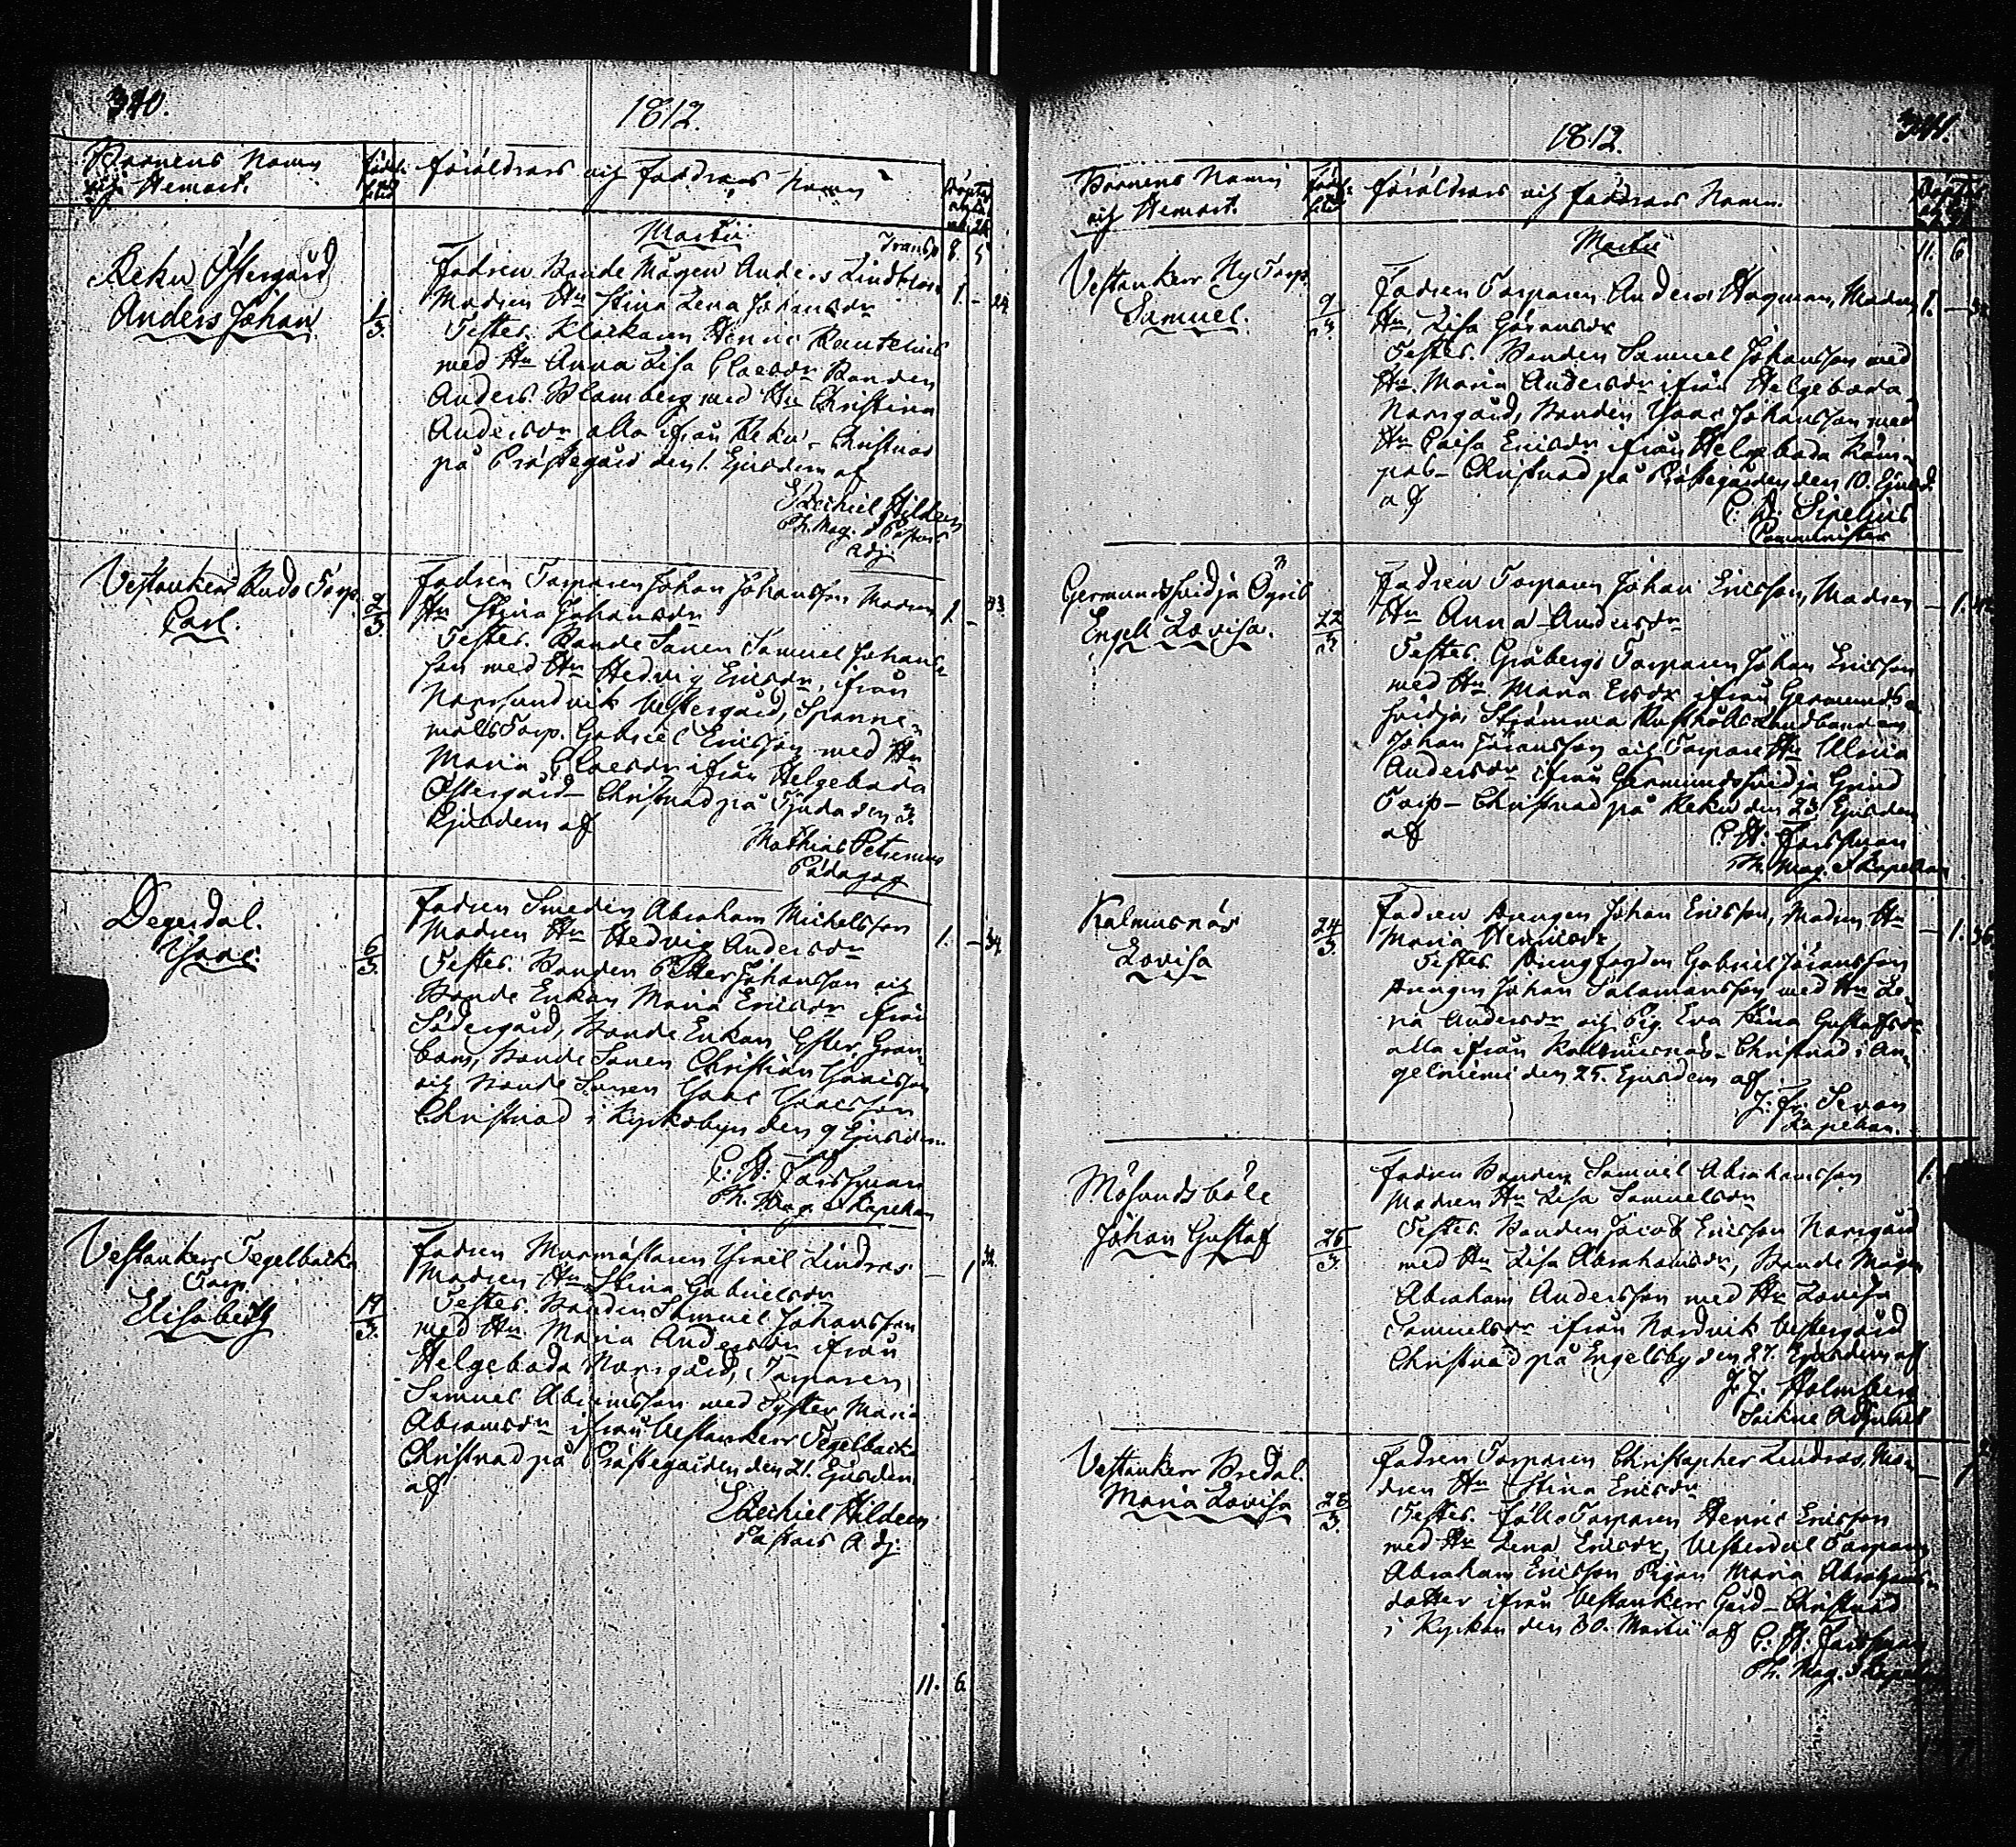 340.
1812.
Barnens Namn
och Hemort.
födelse
tid
föräldrars och faddrars Namn
Martii
Transp. 8. 5
Reku Östergård
Anders Johan
1/3.
Fadren Bonde Mågen Anders Lindblom
Modren Hu Stina Lena Johansdr
1. - 24.
Testes. Klockaren Henric
med Hu Anna Lisa Claesdr Bonden
Anders Blomberg med Hu Christina
Andersdr alla ifrån Reku - Christnad
på Prästegård den 1. Ejusdem af
Ezechiel Hildeen
Ph. Mag. & Pastors
Adj.
Vestankerr Torp.
Carl.
2/3.
Fadren Torparen Johan Johansson Modren
Hu Stina Johansdr
1. - 43.
Testes. Bonde Sonen Samuel Johans-
son med Hu Hedvig Ericsdr, ifrån
Norrsundvik Vestergård, Spanne-
måls Torp. Gabriel Ericsson med Hu
Maria Claesdr ifrån Helgeboda
Östergård - Christnad på Tjuda den 3.
Ejusdem af
Mathias Petrenius
Pädagog
Degerdal.
Isaac.
6/3.
Fadren Smeden Abraham Michelsson
Modren Hu Hedvig Andersdr
1. - 34.
Testes. Bonden Petter Johansson och
Bonde Enkan Maria Ericsdr ifrån
Södergård, Bonde Enkan Ester Gran-
bom, Bonde Sonen Christian Isaacsson
och Bonde Sonen Isaac Isaacsson
Christnad i Kyrkobyn den 9 Ejusdem
af
C. H. Forssman
Ph. Mag. & Kapellan
Vestankerr Tegelbacka
Torp.
Elisabeth
19/3.
Fadren Murmästaren Israil Lindros
Modren Hu Stina Gabrielsdr
- 1
Testes. Bonden Samuel Johansson
med Hu Maria Andersdr ifrån
Helgeboda Norrgård, Torparen
Samuel Abramsson med Syster Maria
Abramsdr ifrån Vestankerr Tegelbacka
Christnad på Prästegården den 21. Ejusdem
af
Ezechiel Hildeen
Pastors Adj.
11. 6.
341.
1812.
Barnens Namn
och Hemort.
födelse
tid
föräldrars och faddrars Namn.
Martii
11. 6
Vestankerr Ny Torp.
Samuel.
9/3.
Fadren Torparen Anders Hagman, Modren
Hu Lisa Göransdr
1. -
Testes. Bonden Samuel Johansson med
Hu Maria Andersdr ifrån Helgeboda
Norrgård, Bonden Isaac Johansson med
Hu Caisa Ericsdr ifrån Helgeboda
- Christnad på Prästegården den 10. Ejusd.
af
C. D. Sipelius
Comminister
Germundsvidja
Engell Lovisa.
22/3
Fadren Torparen Johan Ericsson, Modren
Hu Anna Andersdr
- 1.
Testes. Gråbergs Torparen Johan Ericsson
med Hu Maria Ersdr ifrån Germunds-
vidja, Strömma Rusthålls Landbonden
Johan Göransson och Torpare Hu Ulrica
Andersdr ifrån Germundsvidja Grind
Torp - Christnad på Reku den 23 Ejusdem
af
C. H. Forssman
Ph. Mag. & Kapellan
Kalmusnäs
Lovisa
24/3.
Fadren Drengen Johan Ericsson, Modren Hu
Maria Henricsdr
- 1. 36
Testes. Gabriel Göransson
Drengen Johan Salomonsson med Hu Le-
na Andersdr och Pig. Eva Stina Gustafsdr
alla ifrån Kalmusnäs - Christnad i An-
gelniemi den 25. Ejusdem af
J. Fr. Sevon
Kapellan.
Mösundsböle
Johan Gustaf
26/3.
Fadren Bonden Samuel Abrahamsson
Modren Hu Lisa Samuelsdr
1.
Testes. Bonden Jacob Ericsson Norrgård
med Hu Lisa Abrahamsdr, Bonde Mågen
Abraham Andersson med Hu Lovisa
Samuelsdr ifrån Nordvik Vestergård
Christnad på Engelsby den 27. Ejusdem af
J. J. Holmberg
Sockne Adjunct
Vestankerr Bredal.
Maria Lovisa
28/3.
Fadren Torparen Christopher Lindros, Mo-
dren Hu Stina Ericsdr
- 1
Testes. Torparen Henric Ericsson
med Hu Lena Ericsdr, Vesterdal Torparen
Abraham Ericsson Pigan Maria Abrahams-
dotter ifrån Vestankerr Gård - Christnad
i Kyrkan den 30. Martii af
C. H. Forssman
Ph. Mag. & Kapellan